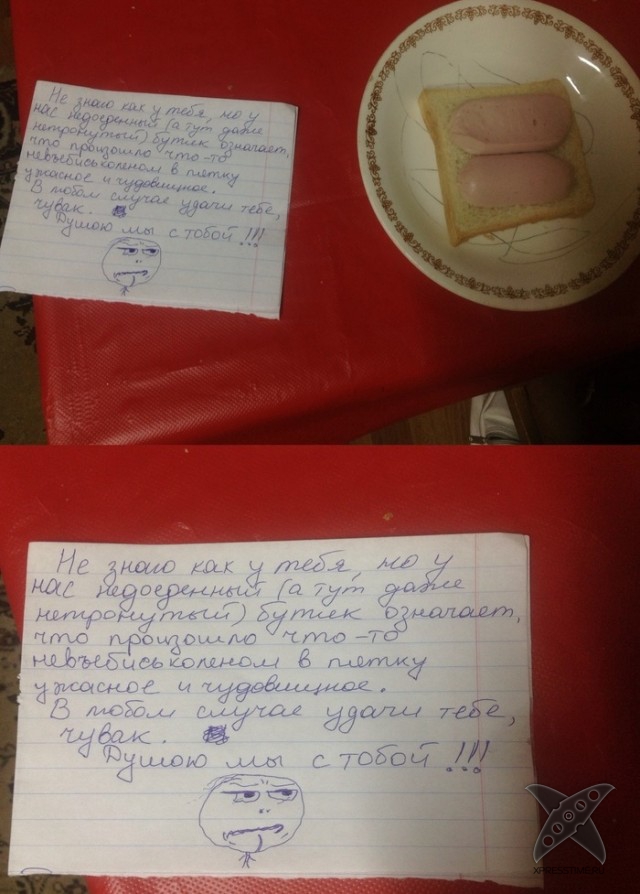 Не знаю как у тебя, но у
нас недоеденный (а тут даже
нетронутый) бутик означает,
что произошло что-то
невъебиськоленом в пятку
ужасное и чудовищное.
В любом случае удачи тебе,
чувак.
Душою мы с тобой!!!
Не знаю как у тебя, но у
нас недоеденный (а тут даже
нетронутый) бутик означает,
что произошло что-то
невъебиськоленом в пятку
ужасное и чудовищное.
В любом случае удачи тебе,
чувак.
Душою мы с тобой!!!
XPRESSTIME.RU